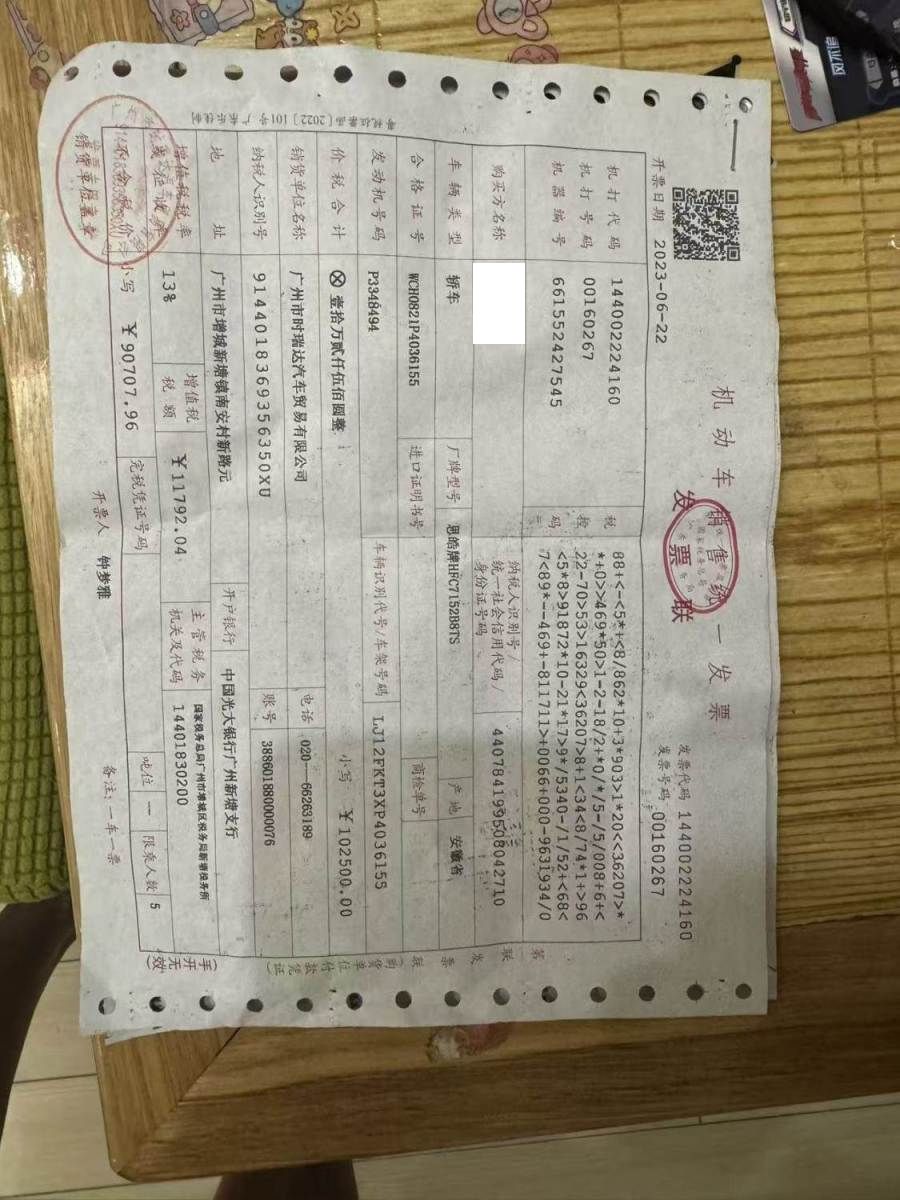 机动车销售统一发票
发票联
发票代码 144002224160
发票号码 00160267
开票日期 2023-06-22
机打代码 144002224160
机打号码 00160267
机器编号 661552427545
税控码
88+<-<5*+<8/862*10+3*903>1*20<<36207>*
*+0>>469*50>1-2-18/2+*0/*/5-/5/008+6+<
22-70>53>16329<36207>8+1<34<8/74*1+>96
<5*8>91872*10-21*17>9*/5340-/1/52+<68<
7<89*--469+-811711>+0066+000-9631934/0
购买方名称
纳税人识别号/
统一社会信用代码/
身份证号码 440784199508042710
车辆类型 轿车 厂牌型号 思皓牌HFC7152B8TS 产地 安徽省
合格证号 WCH0821P4036155 进口证明书号 商检单号
发动机号码 P3348494 车辆识别代号/车架号码 LJ12FKT3XP4036155
价税合计 ⊗壹拾万贰仟伍佰圆整 小写 ￥102500.00
销货单位名称 广州市时瑞达汽车贸易有限公司 电话 020--66263189
纳税人识别号 9144018369356350XU 账号 38860188000076
地址 广州市增城新塘镇南安村新路元 开户银行 中国光大银行广州新塘支行
增值税税率 13% 增值税税额 ￥11792.04 主管税务机关及代码 国家税务总局广州市增城区税务局新塘税务所
14401830200
不含税价 小写 ￥90707.96 完税凭证号码 吨位 一 限乘人数 5
销货单位盖章 开票人 钟梦雅 备注：一车一票
第一联 发票联（购货单位付款凭证）
（手开无效）